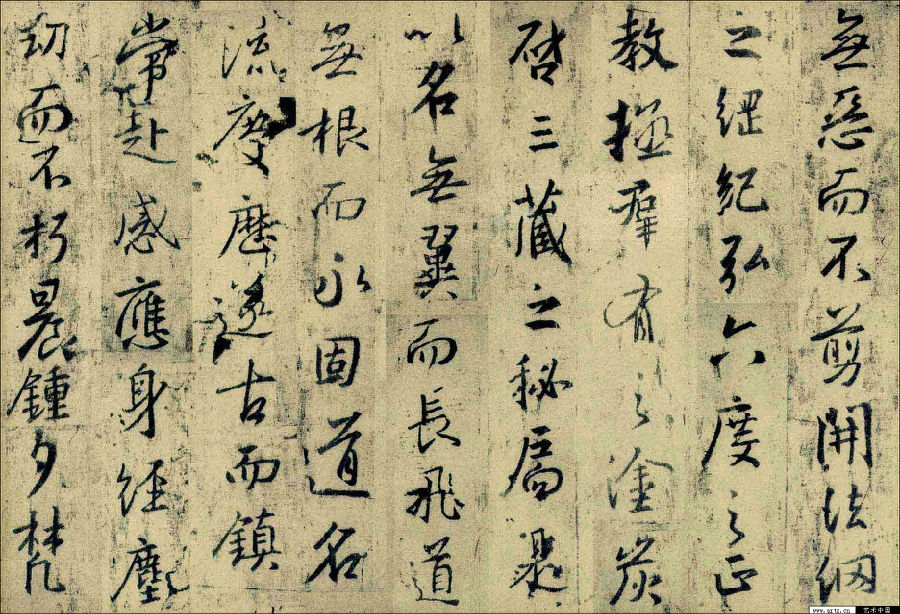 無惡而不剪開法網
之綱紀弘六度之正
教拯羣有之塗炭
啓三藏之秘扃是
以名無翼而長飛道
無根而永固道名
流慶歷遂古而鎮
常赴感應身經塵
劫而不朽晨鍾夕梵
www.artx.cn 艺术中国